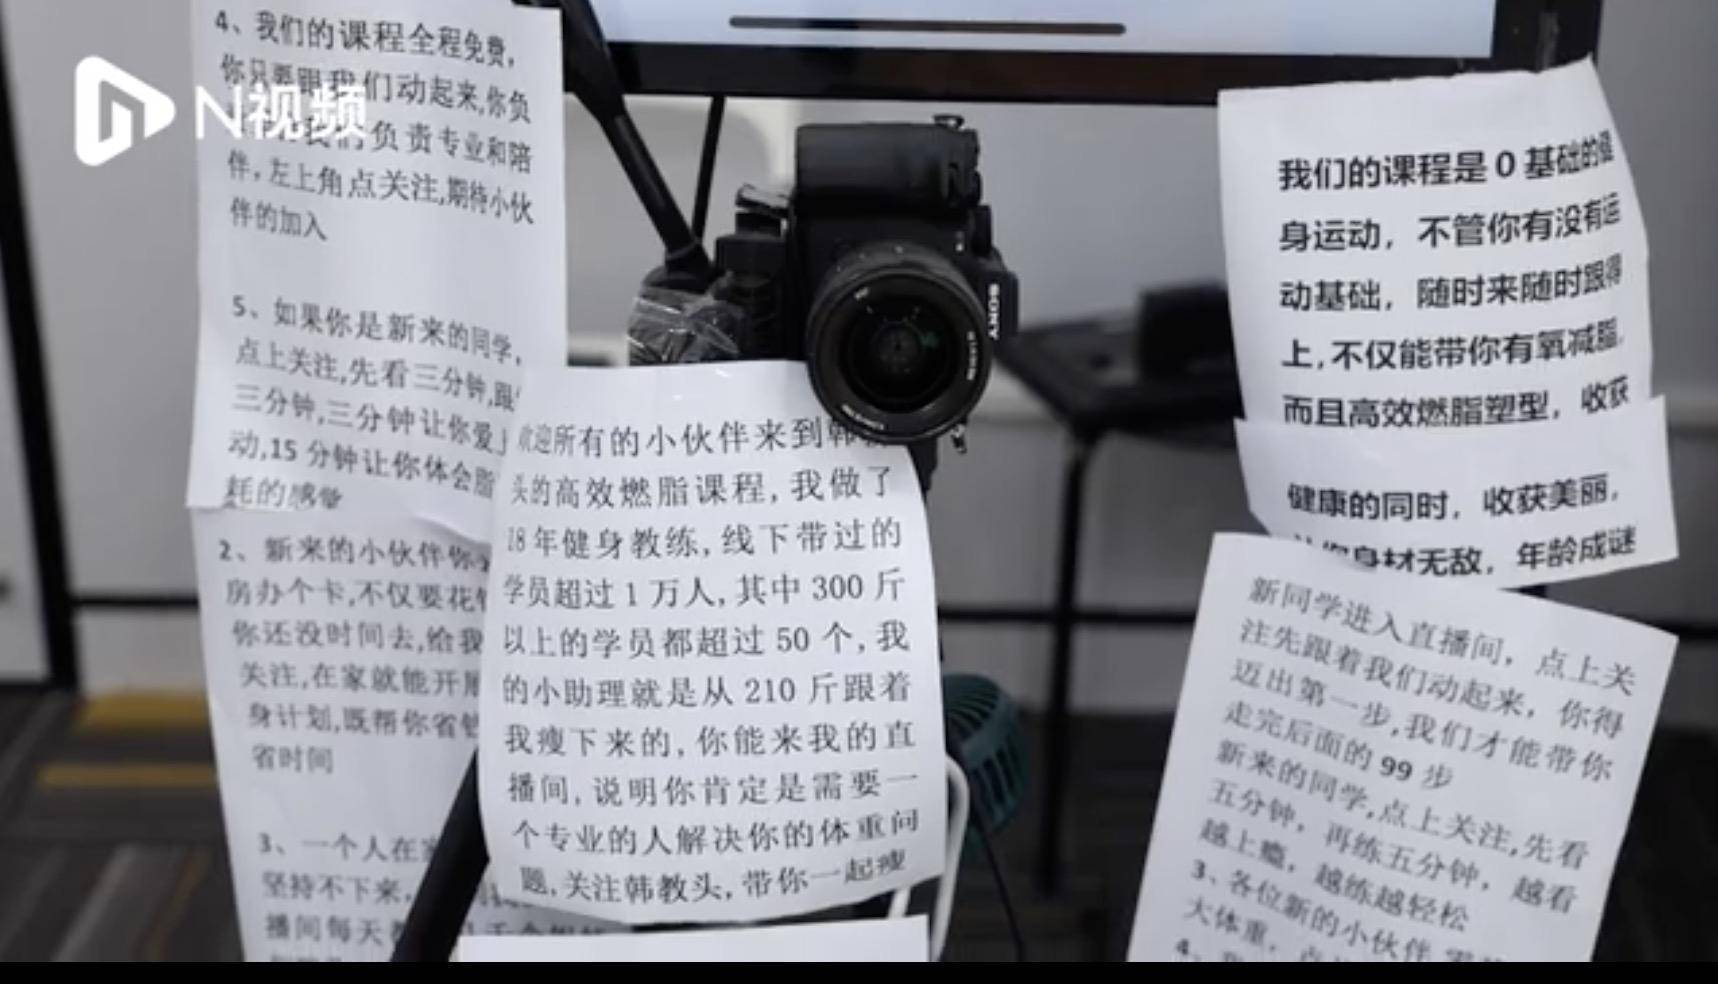 N视频
4、我们的课程全程免费,
你只要跟我们动起来,你负
我们负责专业和陪
伴,左上角点关注,期待小伙
伴的加入
5、如果你是新来的同学,
点上关注,先看三分钟,跟
三分钟,三分钟让你爱
动,15分钟让你体会脂
耗的感觉
2、新来的小伙伴你
房办个卡,不仅要花
你还没时间去,给我
关注,在家就能开
身计划,既帮你省
省时间
3、一个人在
坚持不下来,
播间每天
欢迎所有的小伙伴来到韩
头的高效燃脂课程,我做了
18年健身教练,线下带过的
学员超过1万人,其中300斤
以上的学员都超过50个,我
的小助理就是从210斤跟着
我瘦下来的,你能来我的直
播间,说明你肯定是需要一
个专业的人解决你的体重问
题,关注韩教头,带你一起瘦
SONY
我们的课程是0基础的健
身运动,不管你有没有运
动基础,随时来随时跟得
上,不仅能带你有氧减脂,
而且高效燃脂塑型,收获
健康的同时,收获美丽,
让你身材无敌,年龄成谜
新同学进入直播间,点上关
注先跟着我们动起来,你得
迈出第一步,我们才能带你
走完后面的99步
新来的同学,点上关注,先看
五分钟,再练五分钟,越看
越上瘾,越练越轻松
3、各位新的小伙伴
大体重,
4、